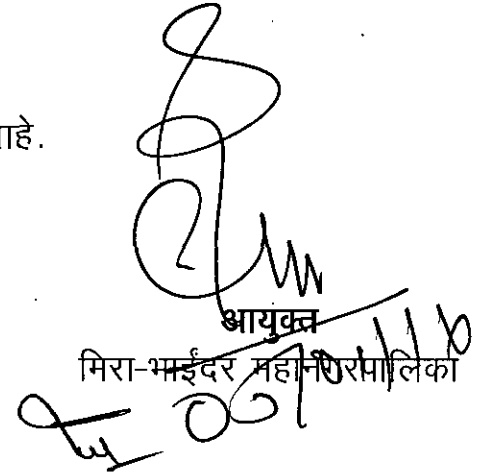 ाहे.
आयुक्त
मिरा-भाईंदर महानगरपालिका